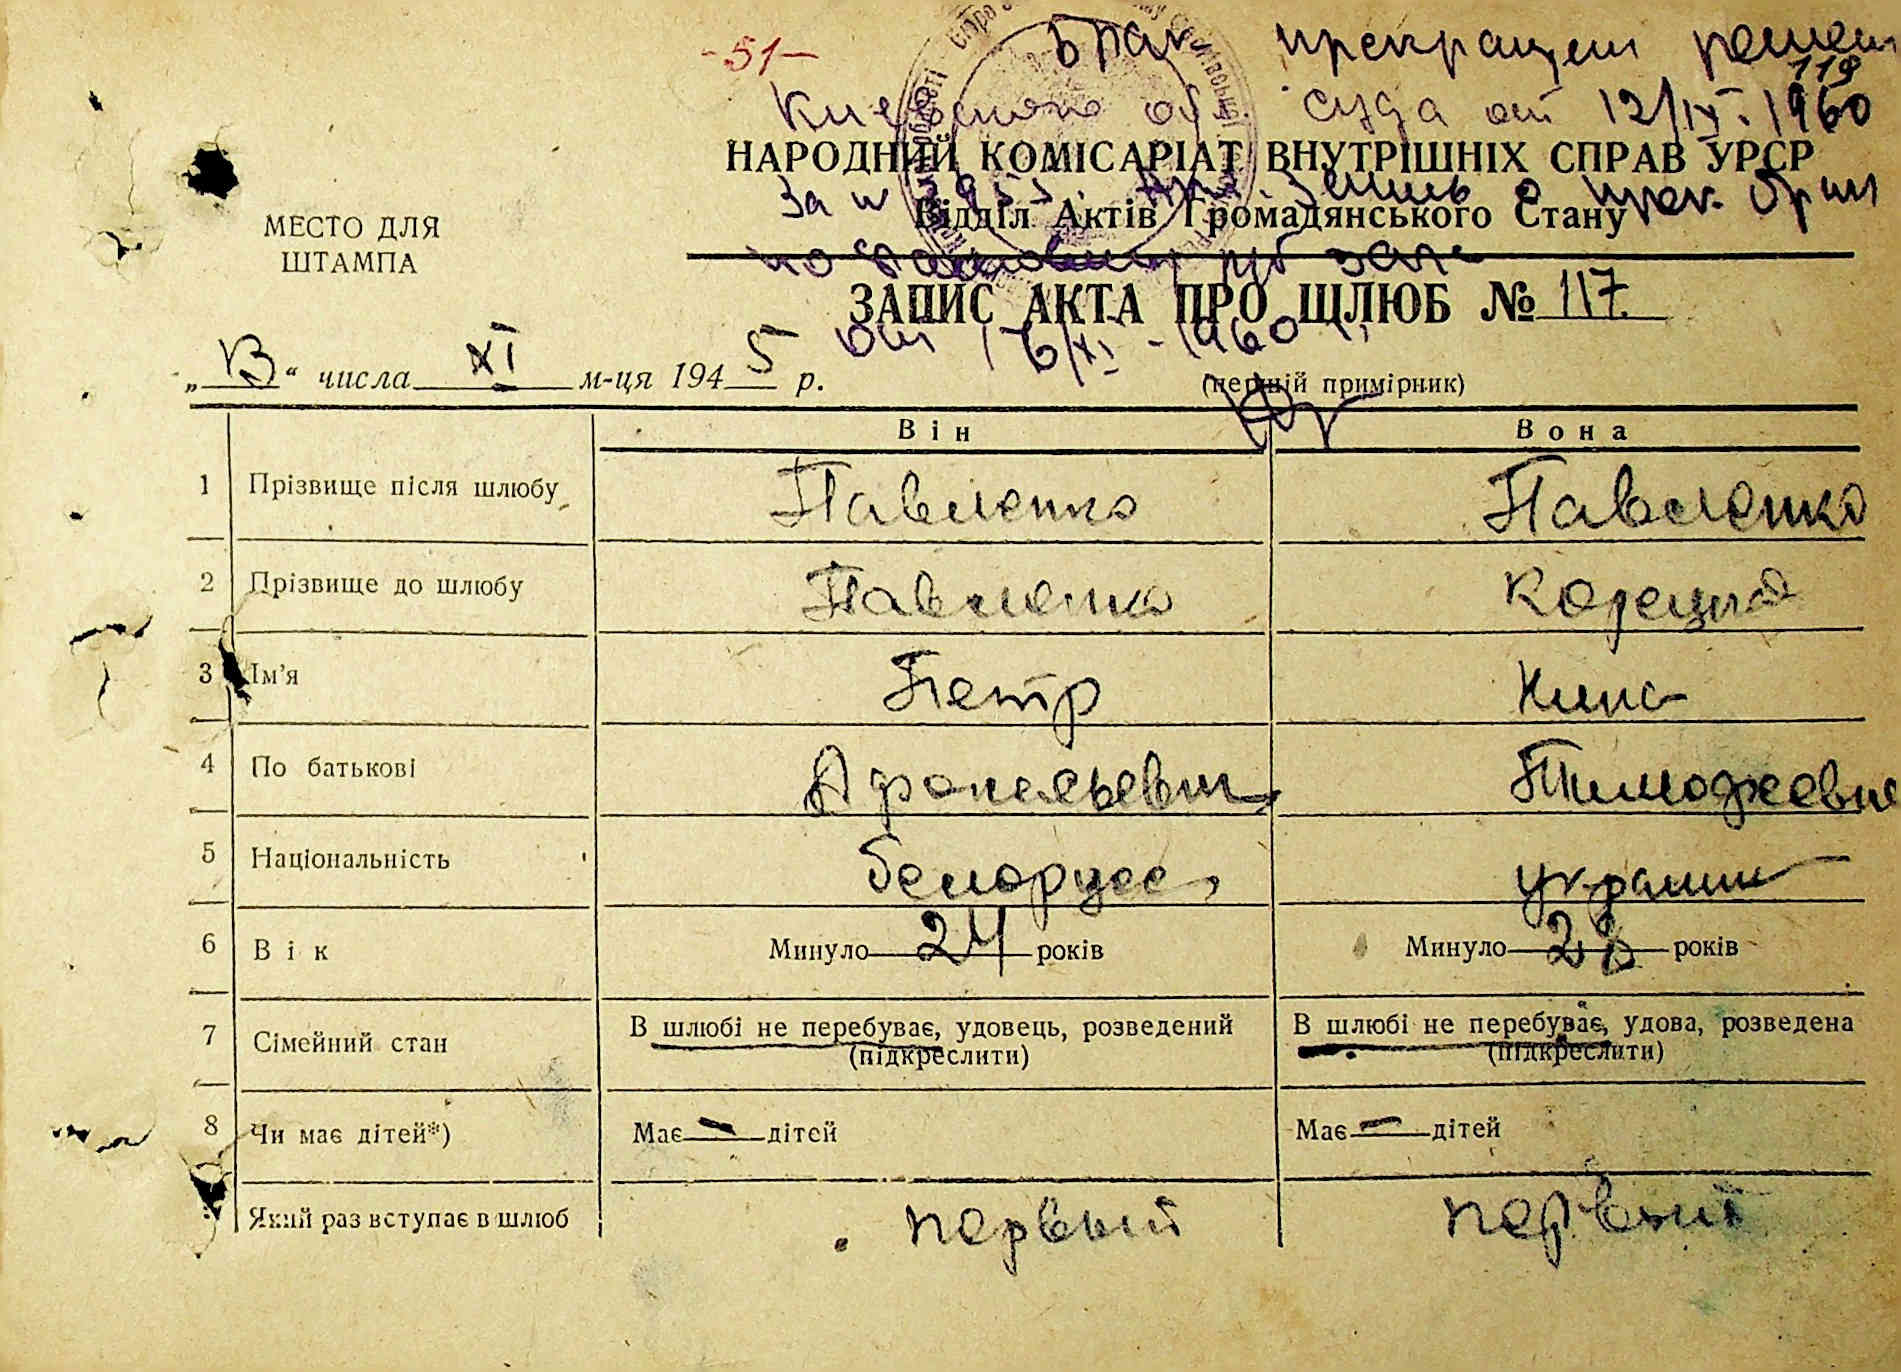 -51-
Брак прекращен решен
119
Киевского обл суда от 12/IX. 1960
НАРОДНИЙ КОМІСАРІАТ ВНУТРІШНІХ СПРАВ УРСР
За № о прек. брак
Відділ Актів Громадянського Стану
МЕСТО ДЛЯ
ШТАМПА
ЗАПИС АКТА ПРО ШЛЮБ № 117.
от 16/XI - 1960 г.
„13“ числа XI м-ця 1945 р.
(перший примірник)
Він Вона
1 Прізвище після шлюбу Павленко Павленко
2 Прізвище до шлюбу Павленко Корецкая
3 Ім’я Петр Нина
4 По батькові Афанасьевич Тимофеевна
5 Національність белорусс украин
6 Вік Минуло 24 років Минуло 28 років
7 Сімейний стан В шлюбі не перебуває, удовець, розведений В шлюбі не перебуває, удова, розведена
(підкреслити) (підкреслити)
8 Чи має дітей*) Має — дітей Має — дітей
Який раз вступає в шлюб первый первый